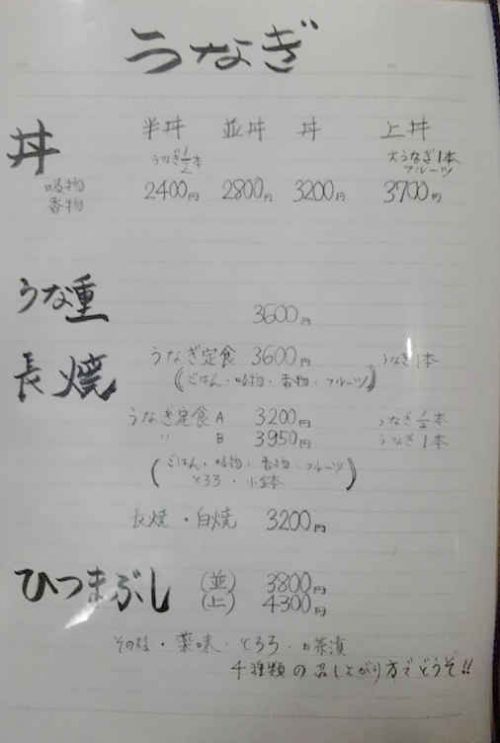 うなぎ
丼 半丼 並丼 丼 上丼
うなぎ1/2本 大うなぎ1本
フルーツ
吸物 2400円 2800円 3200円 3700円
香物
うな重 3600円
長焼 うなぎ定食 3600円 うなぎ1本
(ごはん・吸物・香物・フルーツ)
うなぎ定食 A 3200円 うなぎ1/2本
〃 B 3950円 うなぎ1本
(ごはん・吸物・香物・フルーツ
とろろ・小鉢)
長焼・白焼 3200円
ひつまぶし (並) 3800円
(上) 4300円
そのまま・薬味・とろろ・お茶漬
4種類の召し上がり方でどうぞ!!